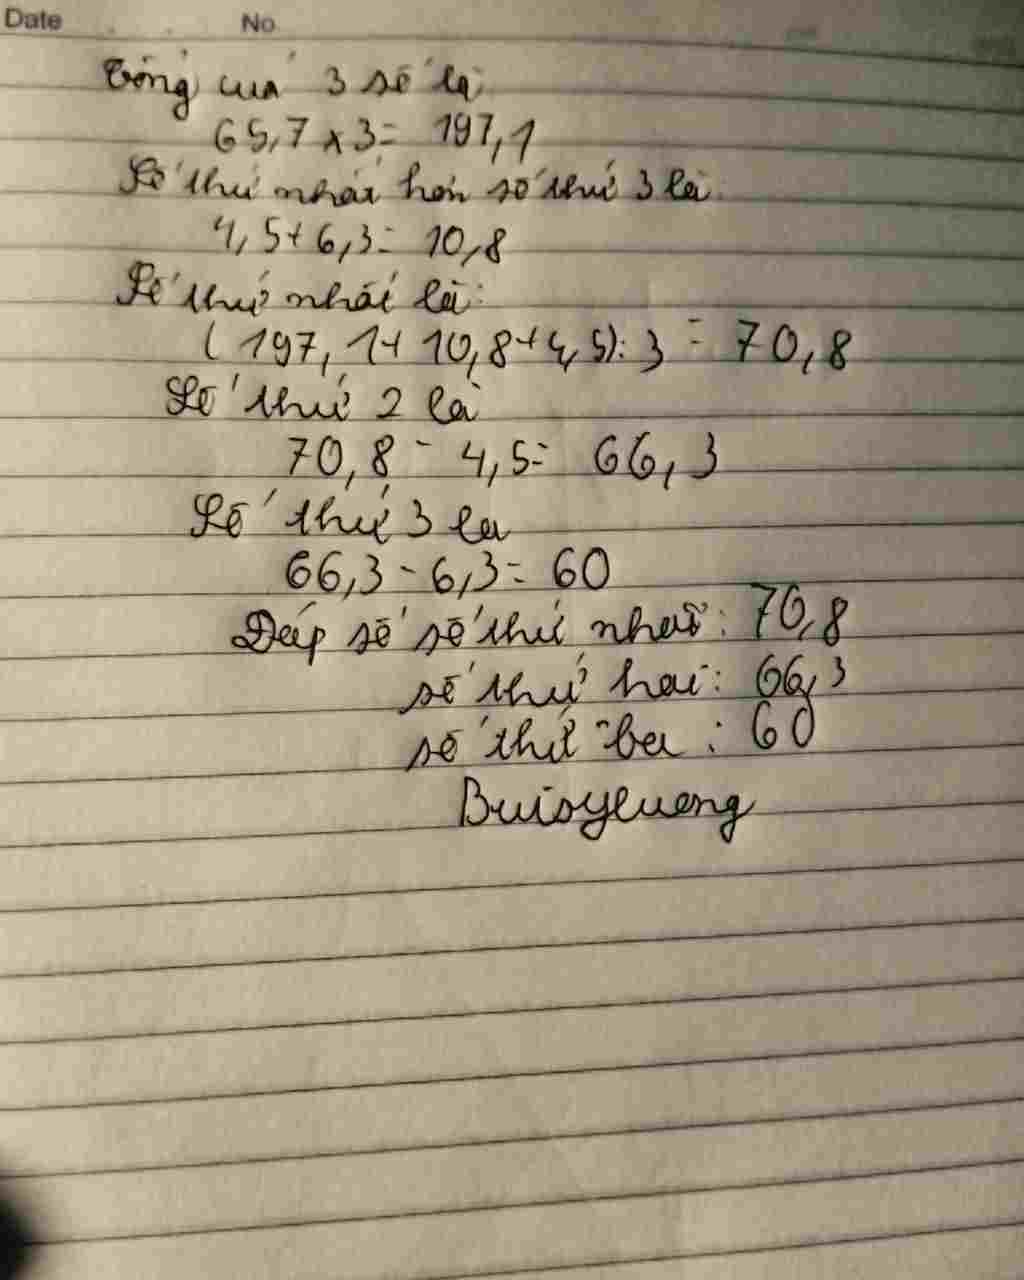 Date No
Tổng của 3 số là
65,7 x 3 = 197,1
Số thứ nhất hơn số thứ 3 là
4,5 + 6,3 = 10,8
Số thứ nhất là:
(197,1 + 10,8 + 4,5) : 3 = 70,8
Số thứ 2 là
70,8 - 4,5 = 66,3
Số thứ 3 la
66,3 - 6,3 = 60
Đáp số số thứ nhất : 70,8
số thứ hai : 66,3
số thứ ba : 60